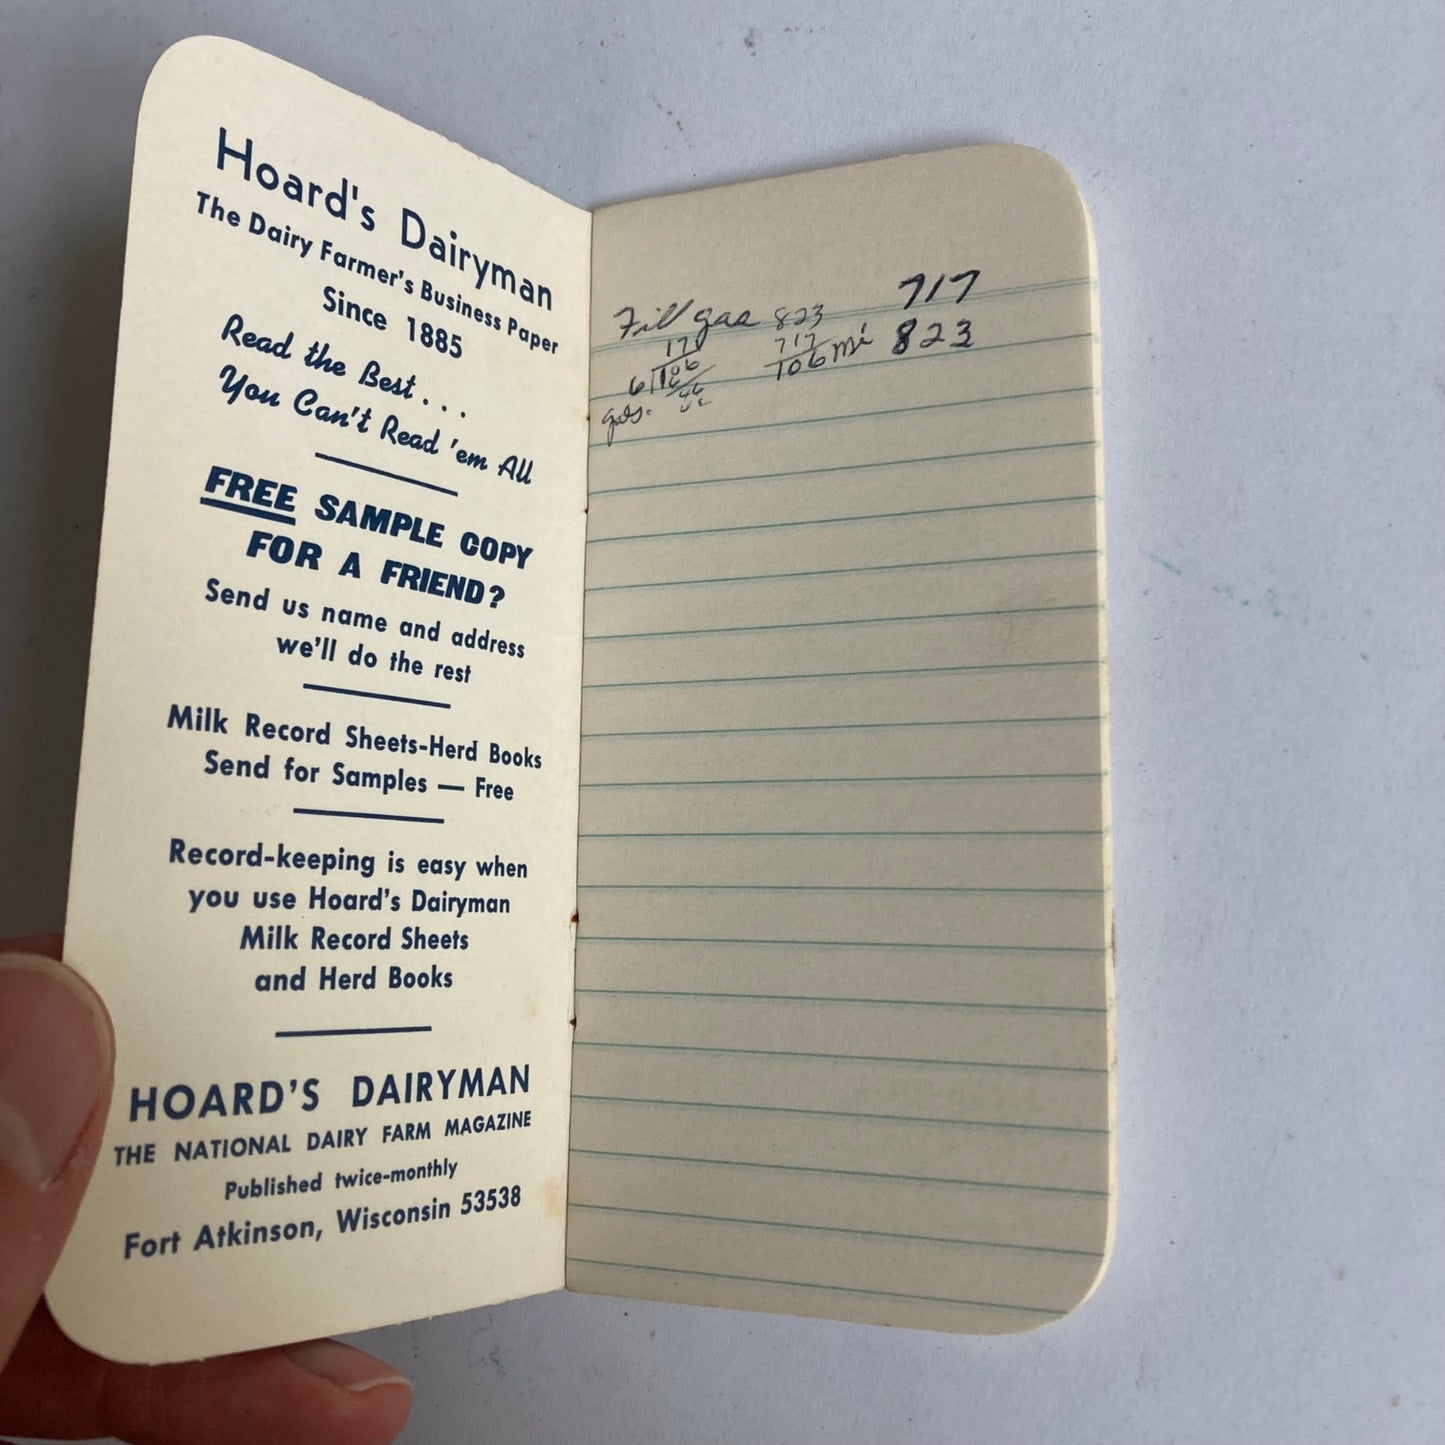 Hoard's Dairyman
The Dairy Farmer's Business Paper
Since 1885
Read the Best . . .
You Can't Read 'em All
FREE SAMPLE COPY
FOR A FRIEND?
Send us name and address
we'll do the rest
Milk Record Sheets-Herd Books
Send for Samples — Free
Record-keeping is easy when
you use Hoard's Dairyman
Milk Record Sheets
and Herd Books
HOARD'S DAIRYMAN
THE NATIONAL DAIRY FARM MAGAZINE
Published twice-monthly
Fort Atkinson, Wisconsin 53538
717
Fill gas 823 823
717
106 mi
6 106
gals.